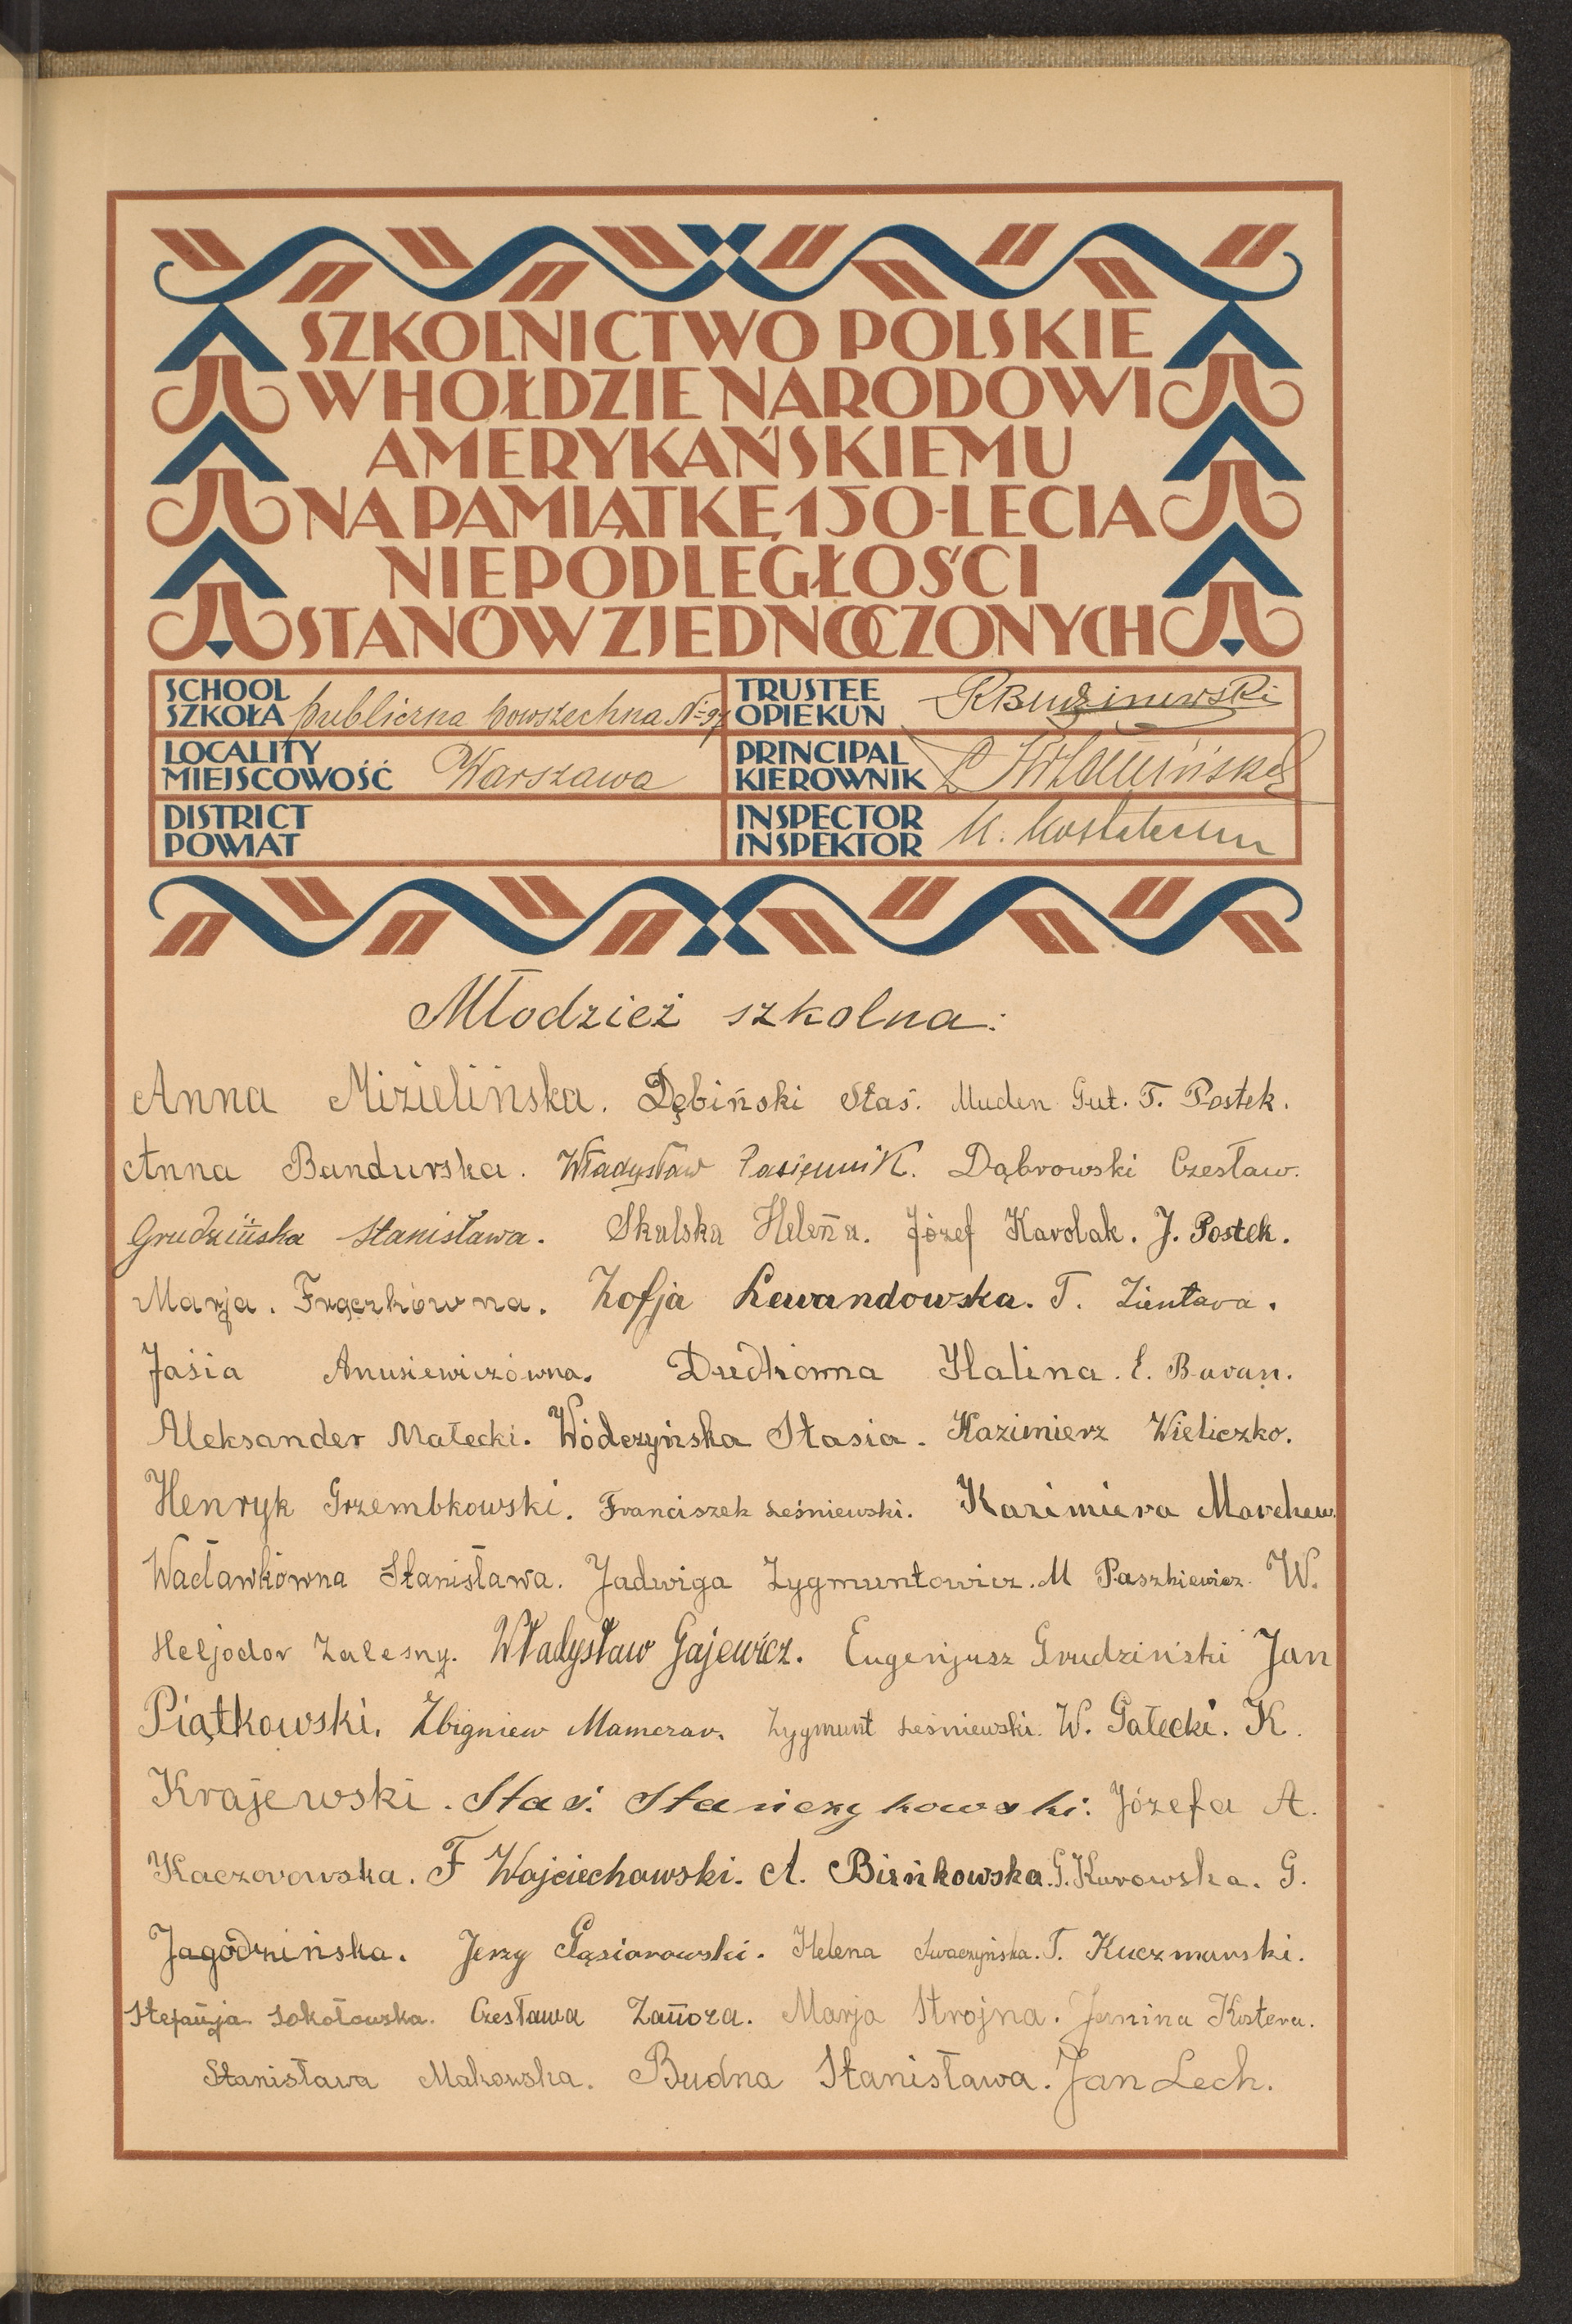 SZKOLNICTWO POLSKIE
W HOŁDZIE NARODOWI
AMERYKAŃSKIEMU
NA PAMIĄTKĘ 150-LECIA
NIEPODLEGŁOŚCI
STANÓW ZJEDNOCZONYCH
SCHOOL
SZKOŁA publiczna powszechna № 97
TRUSTEE
OPIEKUN
LOCALITY
MIEJSCOWOŚĆ Warszawa
PRINCIPAL
KIEROWNIK
DISTRICT
POWIAT
INSPECTOR
INSPEKTOR
Młodzież szkolna:
Anna Mizielińska. Dębiński Staś. Muden Gut. T. Postek.
Anna Bandurska. Władysław Pasięwnik. Dąbrowski Czesław.
Grudzińska Stanisława. Skulska Helena. Józef Karolak. J. Postek.
Marja. Frączkówna. Zofja Lewandowska. T. Zientara.
Jasia Anusiewiczówna. Halina. E. Baran.
Aleksander Małecki. Wódczyńska Stasia. Kazimierz Wieliczko.
Henryk Grzembkowski. Franciszek Leśniewski. Kazimiera Marchew.
Wacławkówna Stanisława. Jadwiga Zygmuntowicz. M Paszkiewicz. W.
Heljodor Zalesny. Władysław Gajewicz. Eugenjusz Grudziński Jan
Piątkowski. Zbigniew Mamczar. Zygmunt Leśniewski. W. Gałecki. K.
Krajewski. Staś. Stańczykowski. Józefa A.
Kaczorowska. F Wojciechowski. A. Bieńkowska. G. Kurowska. G.
Jagodzińska. Jerzy Gąsiorowski. Helena Swaczyńska. T. Kuczmarski.
Stefanja Sokołowska. Czesława Zanoza. Marja Strojna. Janina Kostera.
Stanisława Makowska. Budna Stanisława. Jan Lech.